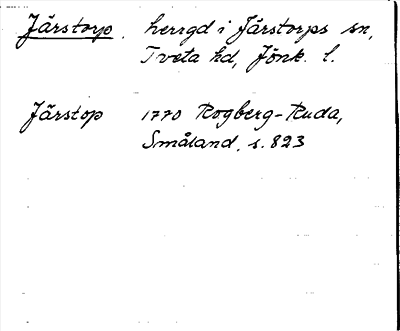 Järstorp. herrgd i Järstorps sn,
Tveta hd, Jönk. l.
Järstop 1770 Rogberg-Ruda,
Småland, s. 823